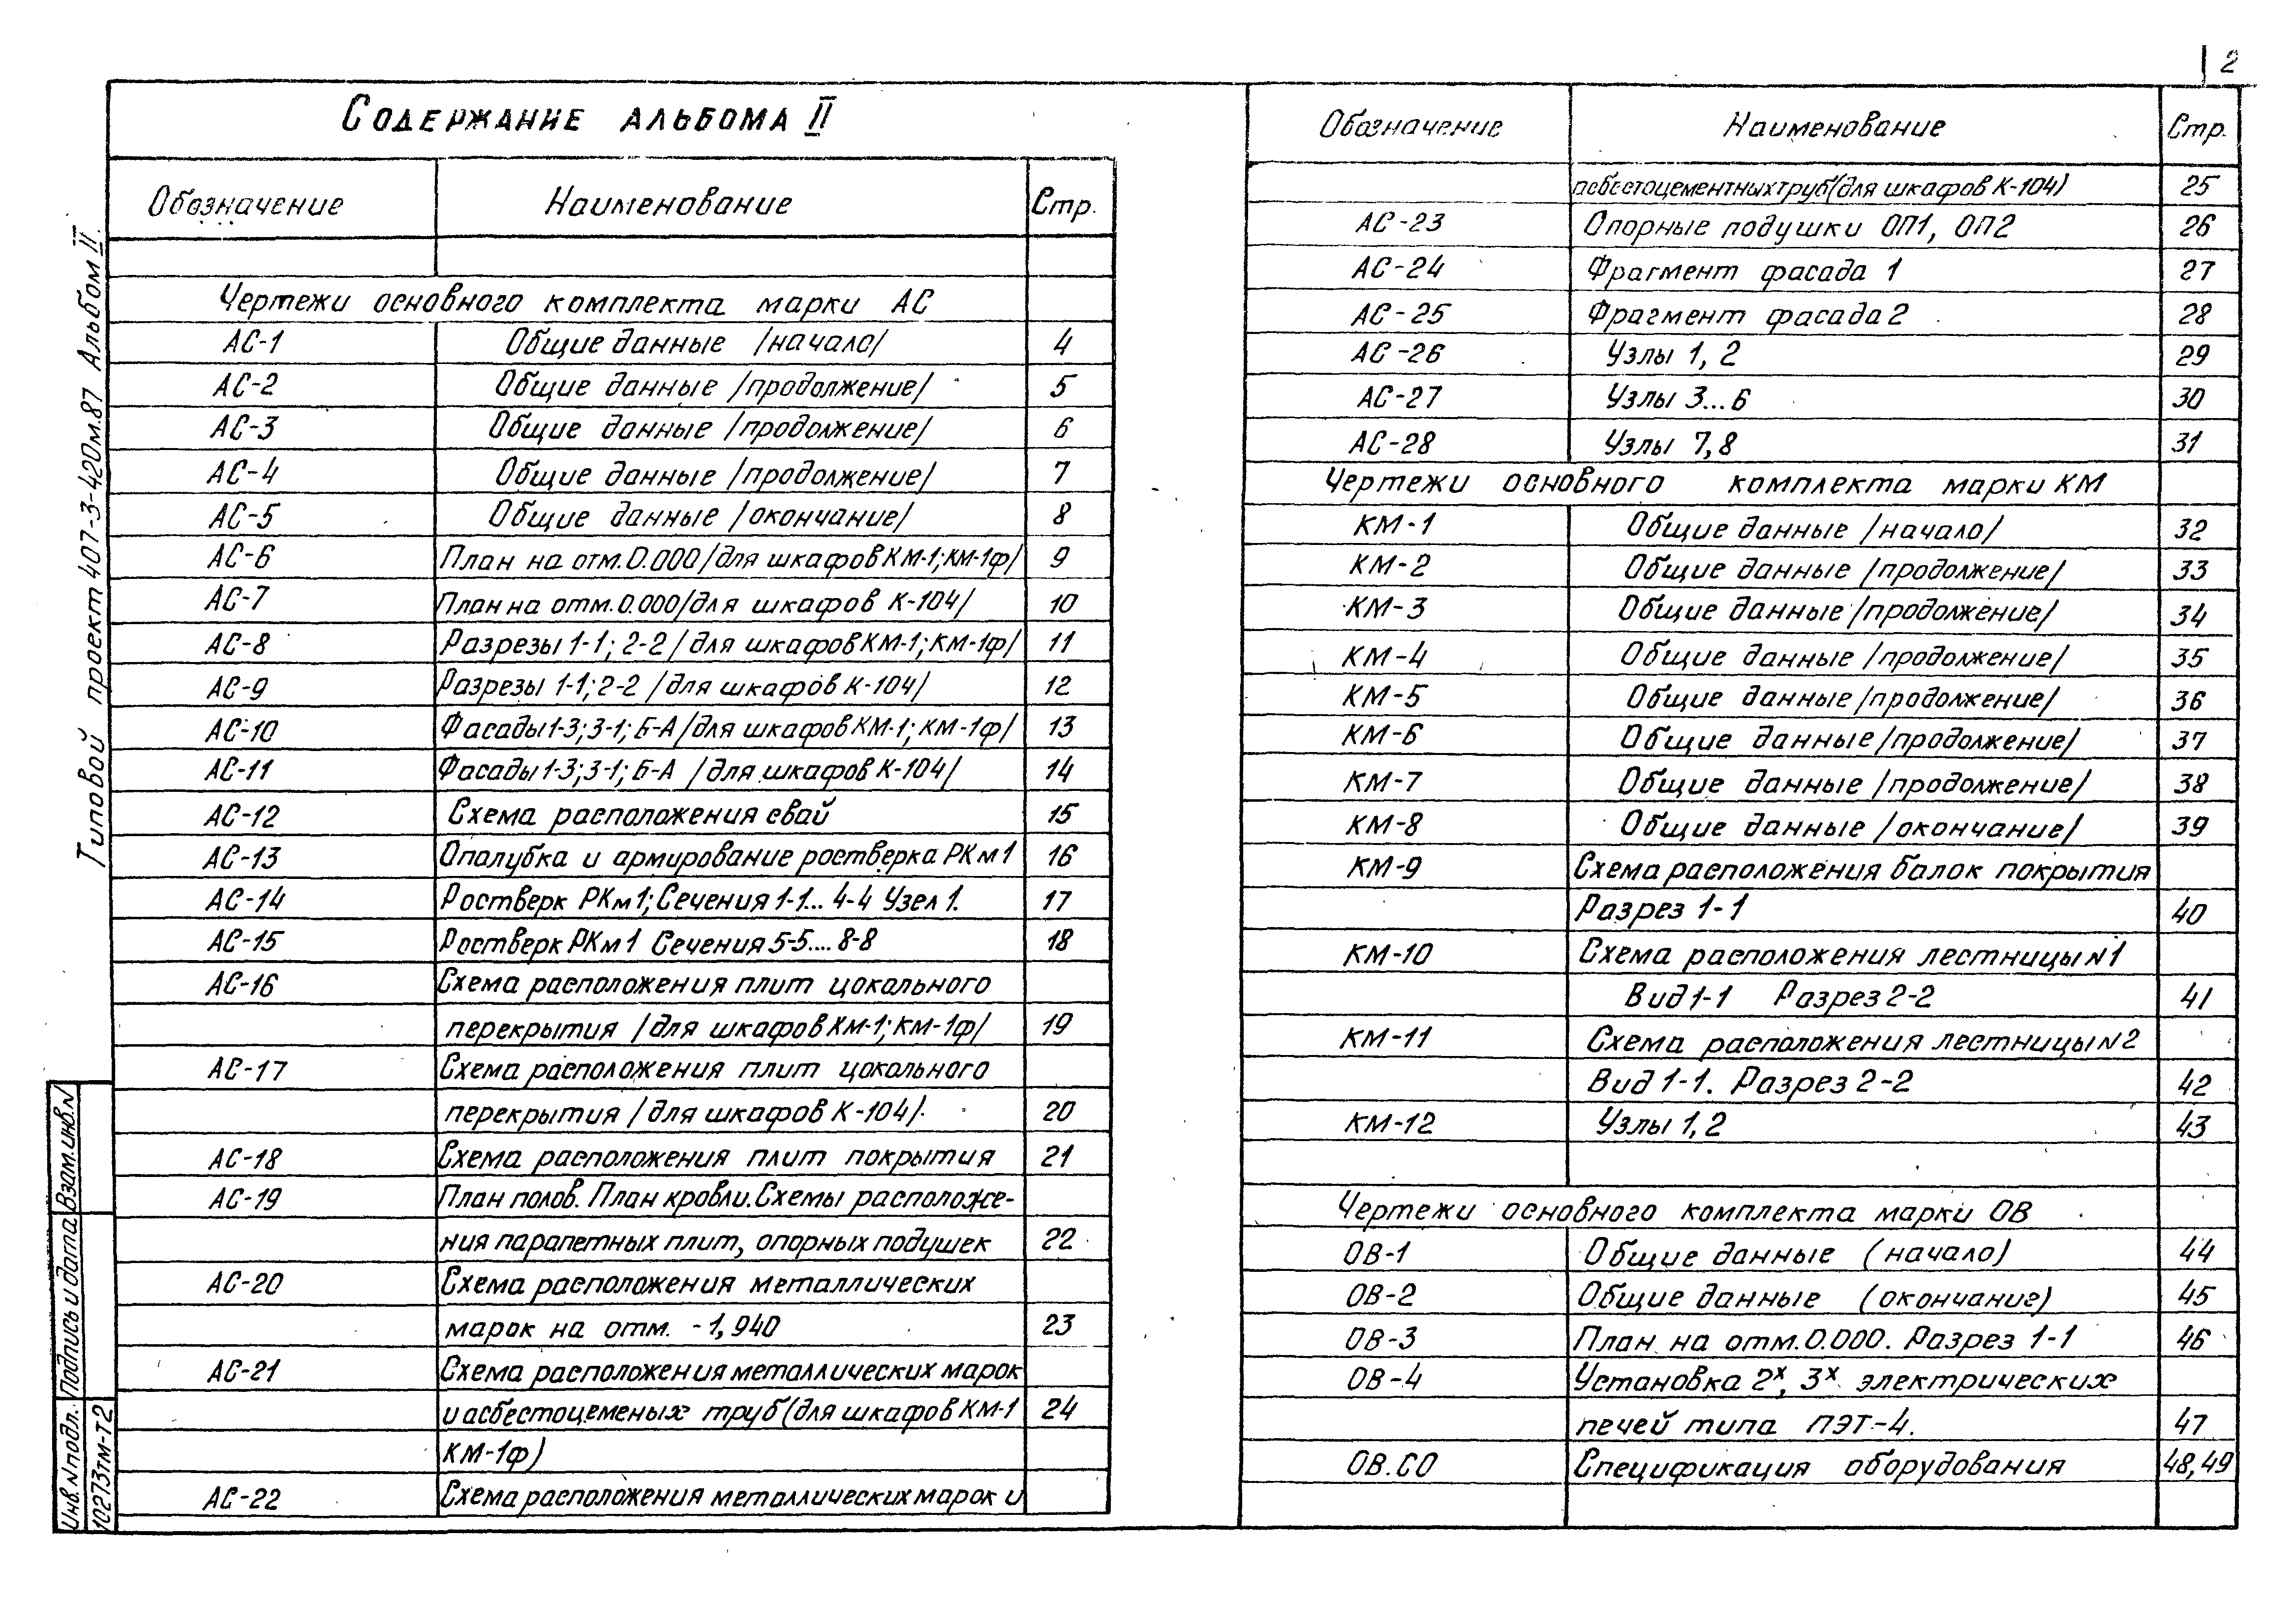 2
Содержание альбома II
Обозначение Наименование Стр.
Чертежи основного комплекта марки АС
АС-1 Общие данные /начало/ 4
АС-2 Общие данные /продолжение/ 5
АС-3 Общие данные /продолжение/ 6
АС-4 Общие данные /продолжение/ 7
АС-5 Общие данные /окончание/ 8
АС-6 План на отм. 0.000 /для шкафов КМ-1; КМ-1ф/ 9
АС-7 План на отм. 0.000 /для шкафов К-104/ 10
АС-8 Разрезы 1-1; 2-2 /для шкафов КМ-1; КМ-1ф/ 11
АС-9 Разрезы 1-1; 2-2 /для шкафов К-104/ 12
АС-10 Фасады 1-3; 3-1; Б-А /для шкафов КМ-1; КМ-1ф/ 13
АС-11 Фасады 1-3; 3-1; Б-А /для шкафов К-104/ 14
АС-12 Схема расположения свай 15
АС-13 Опалубка и армирование ростверка РКм1 16
АС-14 Ростверк РКм1; Сечения 1-1... 4-4 Узел 1. 17
АС-15 Ростверк РКм1 Сечения 5-5.... 8-8 18
АС-16 Схема расположения плит цокального
перекрытия /для шкафов КМ-1; КМ-1ф/ 19
АС-17 Схема расположения плит цокального
перекрытия /для шкафов К-104/. 20
АС-18 Схема расположения плит покрытия 21
АС-19 План полов. План кровли. Схемы расположе-
ния парапетных плит, опорных подушек 22
АС-20 Схема расположения металлических
марок на отм. -1,940 23
АС-21 Схема расположения металлических марок
и асбестоцеменых труб (для шкафов КМ-1 24
КМ-1ф)
АС-22 Схема расположения металлических марок и
Обозначение Наименование Стр.
асбестоцементных труб (для шкафов К-104) 25
АС-23 Опорные подушки ОП1, ОП2 26
АС-24 Фрагмент фасада 1 27
АС-25 Фрагмент фасада 2 28
АС-26 Узлы 1, 2 29
АС-27 Узлы 3...6 30
АС-28 Узлы 7, 8 31
Чертежи основного комплекта марки КМ
КМ-1 Общие данные /начало/ 32
КМ-2 Общие данные /продолжение/ 33
КМ-3 Общие данные /продолжение/ 34
КМ-4 Общие данные /продолжение/ 35
КМ-5 Общие данные /продолжение/ 36
КМ-6 Общие данные /продолжение/ 37
КМ-7 Общие данные /продолжение/ 38
КМ-8 Общие данные /окончание/ 39
КМ-9 Схема расположения балок покрытия
Разрез 1-1 40
КМ-10 Схема расположения лестницы N1
Вид 1-1 Разрез 2-2 41
КМ-11 Схема расположения лестницы N2
Вид 1-1. Разрез 2-2 42
КМ-12 Узлы 1, 2 43
Чертежи основного комплекта марки ОВ
ОВ-1 Общие данные (начало) 44
ОВ-2 Общие данные (окончание) 45
ОВ-3 План на отм. 0.000. Разрез 1-1 46
ОВ-4 Установка 2х, 3х электрических
печей типа ПЭТ-4. 47
ОВ.СО Спецификация оборудования 48,49
Типовой проект 407-3-420м.87 Альбом II.
Взам. инв. N
Подпись и дата
Инв. N подл.
10273тм-т2